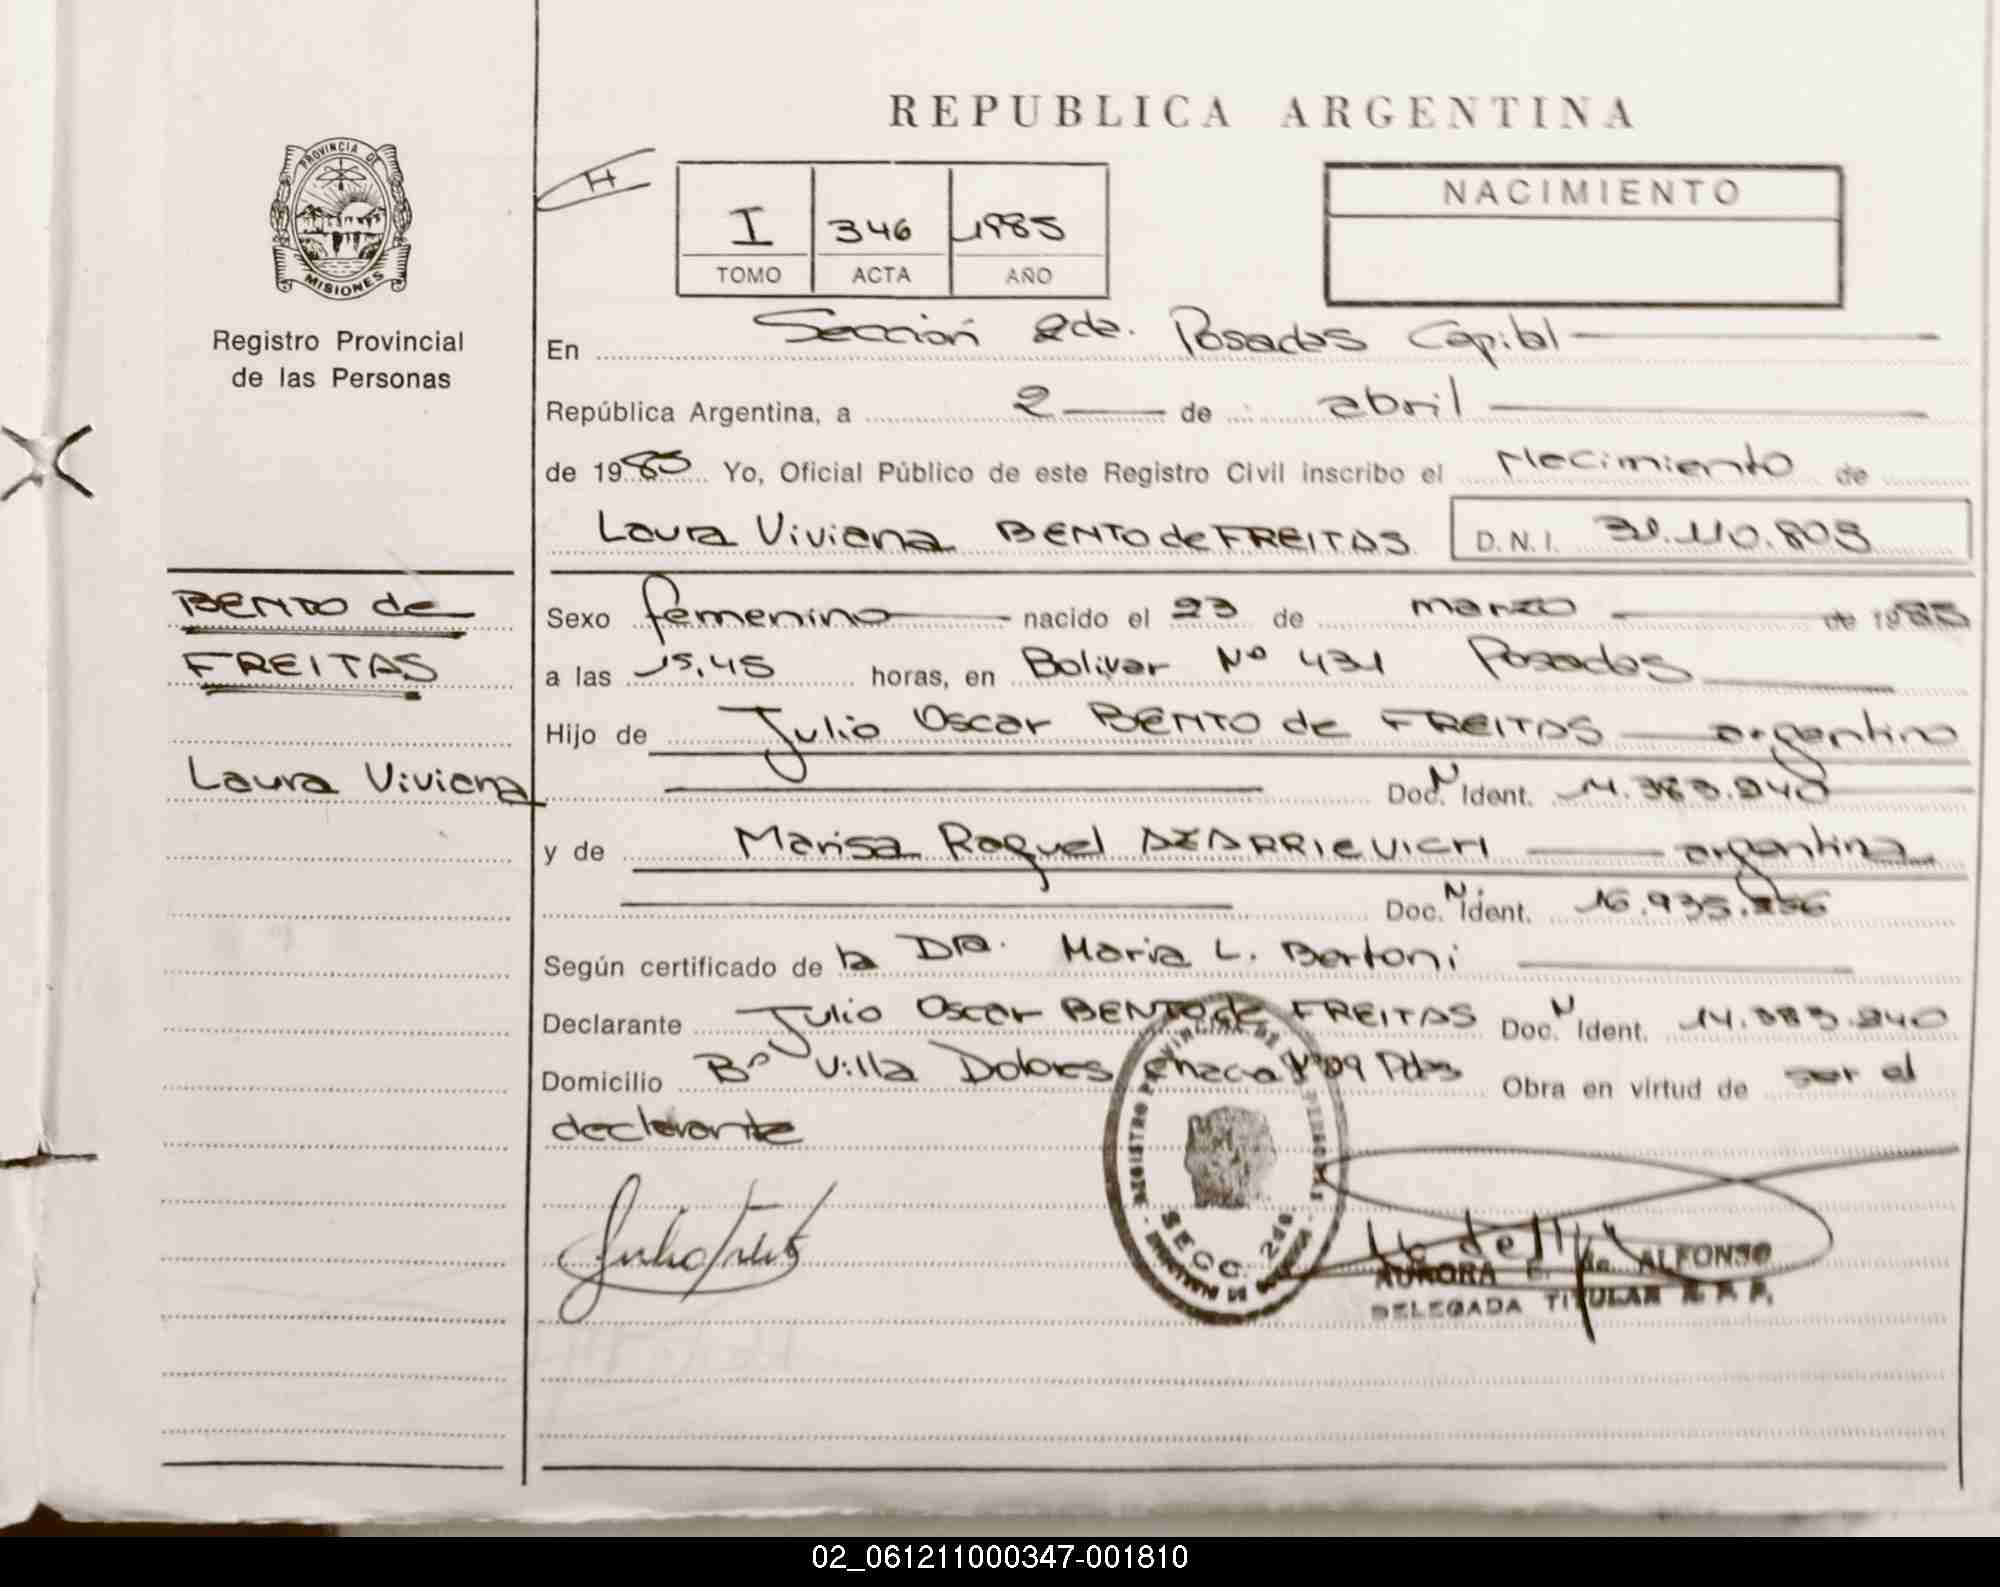 REPUBLICA ARGENTINA
PROVINCIA DE
MISIONES
Registro Provincial
de las Personas
H
I 346 1985
TOMO ACTA AÑO
NACIMIENTO
En Sección 2da. Posadas Capital
República Argentina, a 2 de abril
de 1985 Yo, Oficial Público de este Registro Civil inscribo el Nacimiento de
Laura Viviana BENTO de FREITAS D.N.I. 110.805
BENTO de
FREITAS
Laura Viviana
Sexo femenino nacido el 23 de marzo de 1985
a las 15,45 horas, en Bolivar Nº 431 Posadas
Hijo de Julio Oscar BENTO de FREITAS argentino
Doc. N Ident. 14.383.940
y de Marisa Raquel argentina
Doc. N Ident. 16.935.
Según certificado de la DRA. Maria L. Bertoni
Declarante Julio Oscar BENTO de FREITAS Doc. N Ident. 14.383.940
Domicilio Bº Villa Dolores Chacra Pdas Obra en virtud de ser el
declarante
SECC. 2da
AURORA E. de ALFONSO
DELEGADA TITULAR R. P. P.
02_061211000347-001810